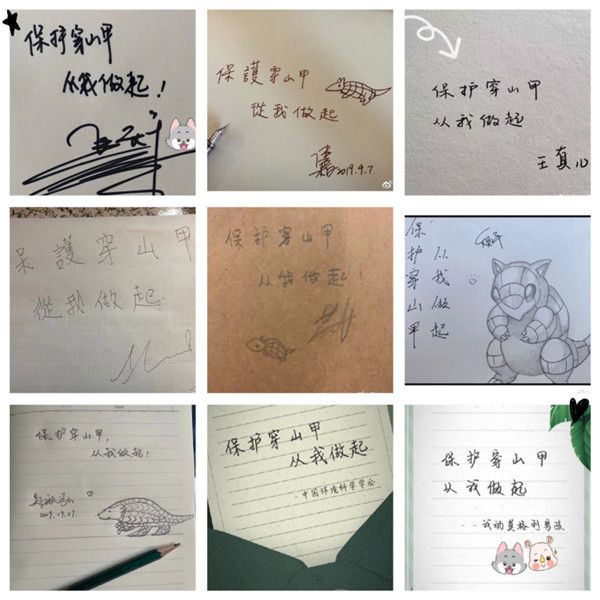 保护穿山甲
从我做起!
保護穿山甲
從我做起
2019.9.7.
保护穿山甲
从我做起
王真儿
保護穿山甲
從我做起
保护穿山甲
从我做起!
保护穿山甲
从我做起
保护穿山甲,
从我做起!
2019.09.07.
保护穿山甲
从我做起
-中国环境科学学会
保护穿山甲
从我做起
--我的莫格利男孩